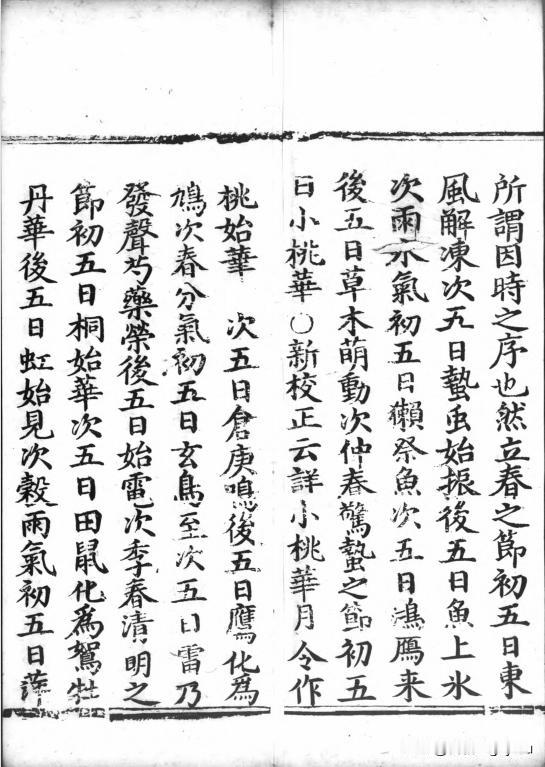 所謂因時之序也然立春之節初五日東
風解凍次五日蟄虫始振後五日魚上氷
次雨水氣初五日獺祭魚次五日鴻鴈来
後五日草木萌動次仲春驚蟄之節初五
日小桃華〇新校正云詳小桃華月令作
桃始華　次五日倉庚鳴後五日鷹化為
鳩次春分氣初五日玄鳥至次五日雷乃
發聲芍藥榮後五日始電次季春清明之
節初五日桐始華次五日田鼠化為鴽牡
丹華後五日虹始見次穀雨氣初五日萍